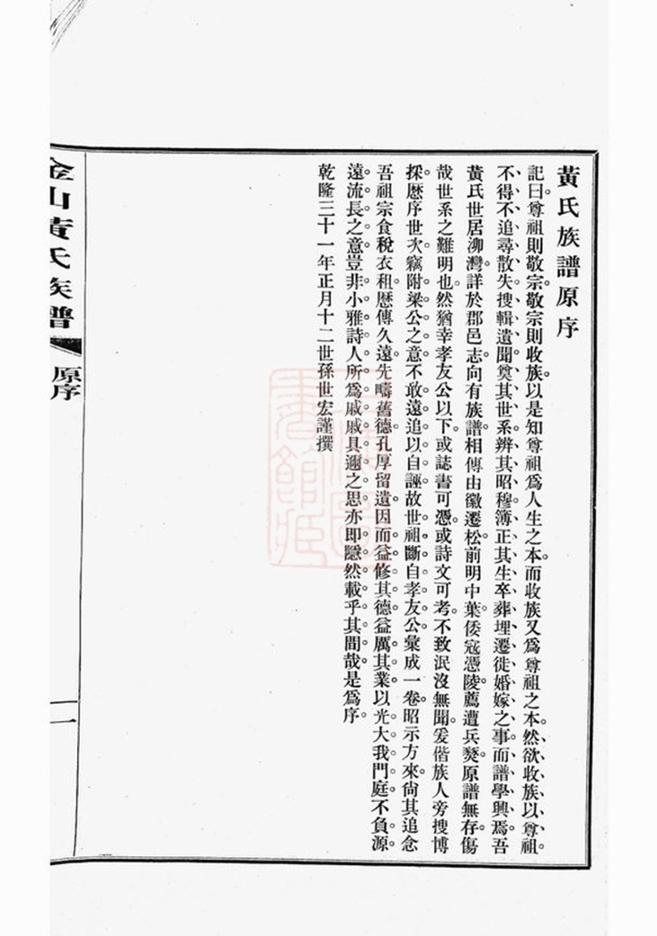 黃氏族譜原序
記曰尊祖則敬宗敬宗則收族以是知尊祖爲人生之本而收族又爲尊祖之本然欲收族以尊祖
不得不追尋散失搜輯遺聞奠其世系辨其昭穆簿正其生卒葬埋遷徙婚嫁之事而譜學興焉吾
黃氏世居泖灣詳於郡邑志向有族譜相傳由徽遷松前明中葉倭寇憑陵薦遭兵燹原譜無存傷
哉世系之難明也然猶幸孝友公以下或誌書可憑或詩文可考不致泯沒無聞爰偕族人旁搜博
採歷序世次竊附梁公之意不敢遠追以自誣故世祖斷自孝友公彙成一卷昭示方來尙其追念
吾祖宗食稅衣租歷傳久遠先疇舊德孔厚留遺因而益修其德益厲其業以光大我門庭不負源
遠流長之意豈非小雅詩人所爲戚戚具邇之思亦即隱然載乎其間哉是爲序
乾隆三十一年正月十二世孫世宏謹撰
金山黃氏族譜
原序
二